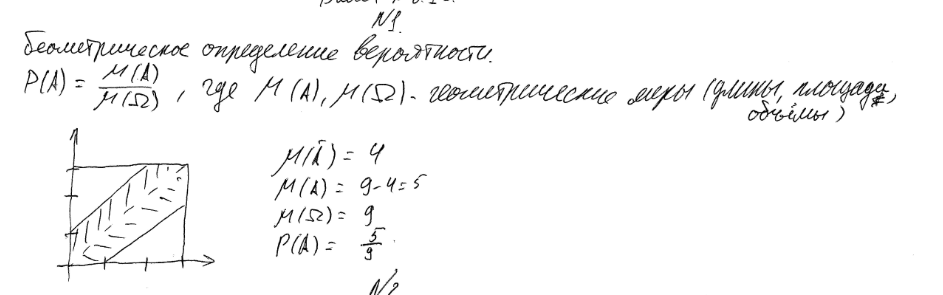 N1.
Геометрическое определение вероятности.
P(A) = M(A)/M(Ω), где M(A), M(Ω) - геометрические меры (длины, площади,
объёмы)
M(Ā) = 4
M(A) = 9-4=5
M(Ω) = 9
P(A) = 5/9.
N2